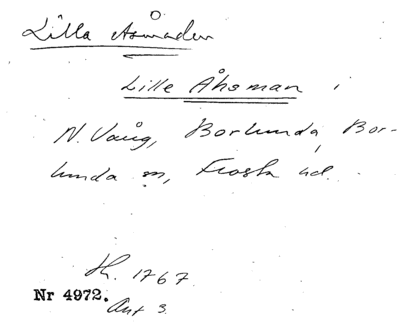 Lilla Åsmaden
Lille Åhsman i
N. Vång, Borlunda, Bor-
lunda sn, Frosta hd.
Sk. 1767
Nr 4972.
Akt 3.